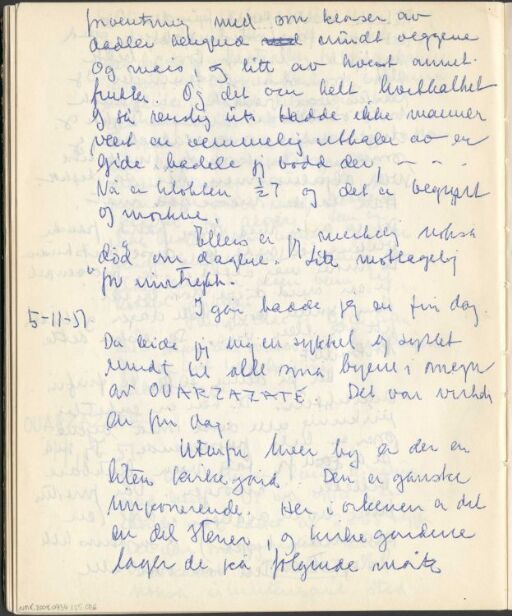 som klaser av
rundt veggene
Og mais, og litt av hvert annet.
frukter. Og det var helt hvitkalket
og så renslig ut. Hadde ikke manner
vært en vemmelig uthaler av en
Gide hadde jeg bodd der - - -
Nå er klokken ½7 og det er begynt
og mørkne.
Ellers er jeg merkelig nokså
død om dagene. Lite mottagelig
for inntrykk.
I går hadde jeg en fin dag.
5-11-51
Da leide jeg meg en sykkel og syklet
rundt til alle små byene i omegn
av OUARZAZATE. Det var virkelig
en fin dag.
Utenfor hver by er der en
liten kirkegård. Den er ganske
imponerende. Her i ørkenen er det
en del stener, og kirkegårdene
lager de på følgende måte